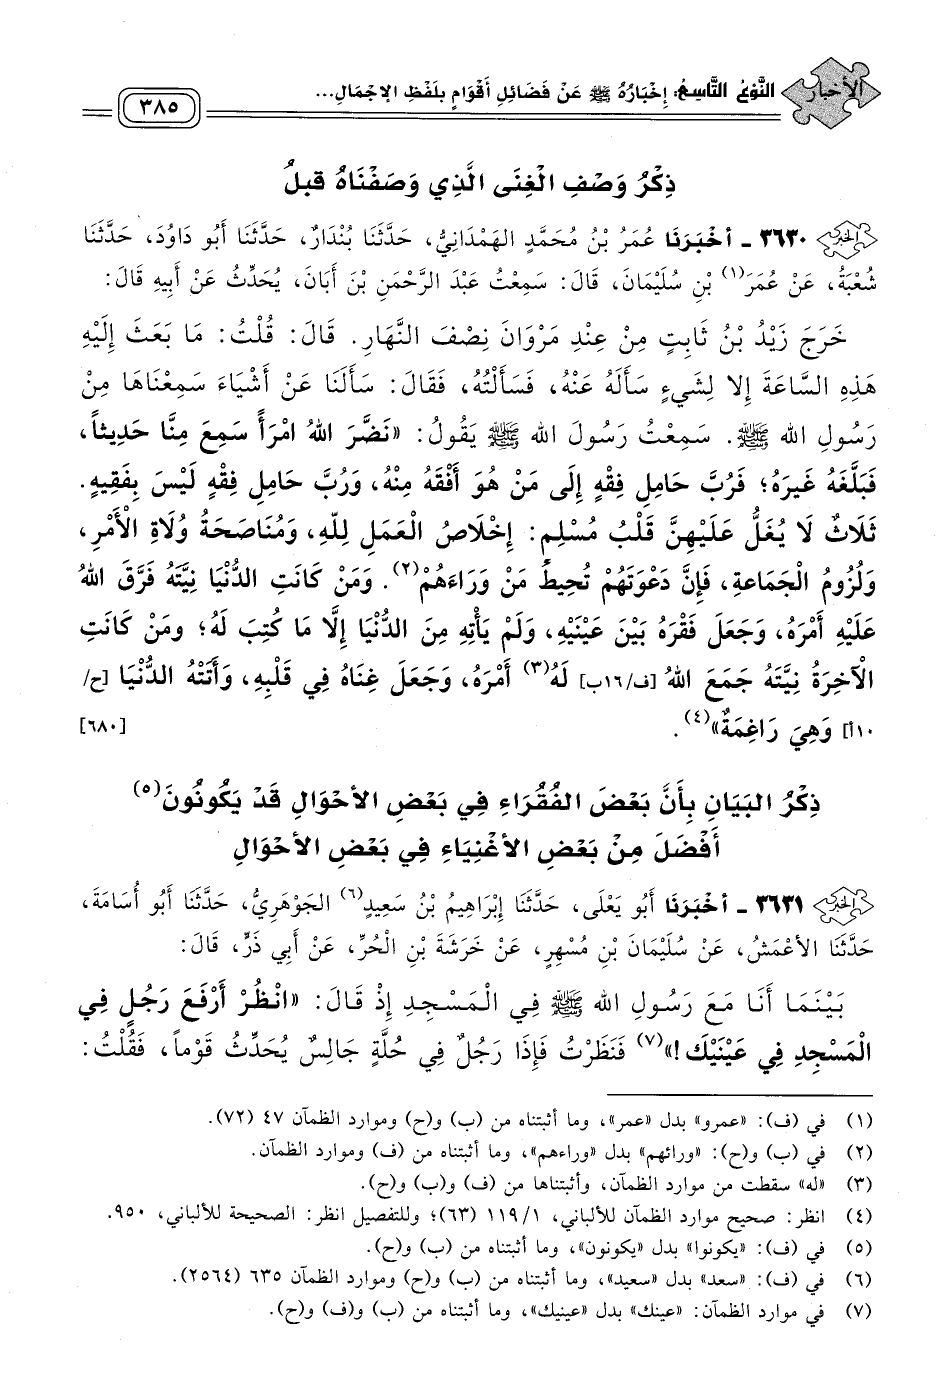 الأخبار
النَّوْعُ التَّاسِعُ: إِخْبَارُهُ ﷺ عَنْ فَضَائِلِ أَقْوَامٍ بِلَفْظِ الإِجْمَالِ...
٣٨٥
ذِكْرُ وَصْفِ الْغِنَى الَّذِي وَصَفْنَاهُ قبلُ
الخبر ٣٦٣٠ - أَخْبَرَنَا عُمَرُ بْنُ مُحَمَّدٍ الهَمْدَانِيُّ، حَدَّثَنَا بُنْدَارٌ، حَدَّثَنَا أَبُو دَاوُدَ، حَدَّثَنَا
شُعْبَةُ، عَنْ عُمَرَ(١) بْنِ سُلَيْمَانَ، قَالَ: سَمِعْتُ عَبْدَ الرَّحْمَنِ بْنَ أَبَانَ، يُحَدِّثُ عَنْ أَبِيهِ قَالَ:
خَرَجَ زَيْدُ بْنُ ثَابِتٍ مِنْ عِنْدِ مَرْوَانَ نِصْفَ النَّهَارِ. قَالَ: قُلْتُ: مَا بَعَثَ إِلَيْهِ
هَذِهِ السَّاعَةَ إِلا لِشَيءٍ سَأَلَهُ عَنْهُ، فَسَأَلْتُهُ، فَقَالَ: سَأَلَنَا عَنْ أَشْيَاءَ سَمِعْنَاهَا مِنْ
رَسُولِ الله ﷺ. سَمِعْتُ رَسُولَ الله ﷺ يَقُولُ: «نَضَّرَ اللهُ امْرَأً سَمِعَ مِنَّا حَدِيثاً،
فَبَلَّغَهُ غَيرَهُ؛ فَرُبَّ حَامِلِ فِقْهٍ إِلَى مَنْ هُوَ أَفْقَهُ مِنْهُ، وَرُبَّ حَامِلِ فِقْهٍ لَيْسَ بِفَقِيهٍ.
ثَلَاثٌ لَا يُغَلُّ عَلَيْهِنَّ قَلْبُ مُسْلِمٍ: إِخْلَاصُ الْعَمَلِ لِلّهِ، وَمُنَاصَحَةُ وُلَاةِ الْأَمْرِ،
وَلُزُومُ الْجَمَاعةِ، فَإِنَّ دَعْوَتَهُمْ تُحِيطُ مَنْ وَرَاءَهُمْ(٢). وَمَنْ كَانَتِ الدُّنْيَا نِيَّتَهُ فَرَّقَ اللهُ
عَلَيْهِ أَمْرَهُ، وَجَعَلَ فَقْرَهُ بَيْنَ عَيْنَيْهِ، وَلَمْ يَأْتِهِ مِنَ الدُّنْيَا إِلَّا مَا كُتِبَ لَهُ؛ ومَنْ كَانَتِ
الْآخِرَةُ نِيَّتَهُ جَمَعَ اللهُ [ف/١٦ب] لَهُ(٣) أَمْرَهُ، وَجَعَلَ غِنَاهُ فِي قَلْبِهِ، وَأَتَتْهُ الدُّنْيَا [ح/
١٠أ] وَهِيَ رَاغِمَةٌ»(٤). [٦٨٠]
ذِكْرُ البَيَانِ بِأَنَّ بَعْضَ الفُقُرَاءِ فِي بَعْضِ الأَحْوَالِ قَدْ يَكُونُونَ(٥)
أَفْضَلَ مِنْ بَعْضِ الأَغْنِيَاءِ فِي بَعْضِ الأَحْوَالِ
الخبر ٣٦٣١ - أَخْبَرَنَا أَبُو يَعْلَى، حَدَّثَنَا إِبْرَاهِيمُ بْنُ سَعِيدٍ(٦) الجَوْهَرِيُّ، حَدَّثَنَا أَبُو أُسَامَةَ،
حَدَّثَنَا الأَعْمَشُ، عَنْ سُلَيْمَانَ بْنِ مُسْهِرٍ، عَنْ خَرَشَةَ بْنِ الْحُرِّ، عَنْ أَبِي ذَرٍّ، قَالَ:
بَيْنَمَا أَنَا مَعَ رَسُولِ الله ﷺ فِي الْمَسْجِدِ إِذْ قَالَ: «انْظُرْ أَرْفَعَ رَجُلٍ فِي
الْمَسْجِدِ فِي عَيْنَيْكَ!»(٧) فَنَظَرْتُ فَإِذَا رَجُلٌ فِي حُلَّةٍ جَالِسٌ يُحَدِّثُ قَوْماً، فَقُلْتُ:
(١) في (ف): «عمرو» بدل «عمر»، وما أثبتناه من (ب) و(ح) وموارد الظمآن ٤٧ (٧٢).
(٢) في (ب) و(ح): «ورائهم» بدل «وراءهم»، وما أثبتناه من (ف) وموارد الظمآن.
(٣) «له» سقطت من موارد الظمآن، وأثبتناها من (ف) و(ب) و(ح).
(٤) انظر: صحيح موارد الظمآن للألباني، ١/ ١١٩ (٦٣)؛ وللتفصيل انظر: الصحيحة للألباني، ٩٥٠.
(٥) في (ف): «يكونوا» بدل «يكونون»، وما أثبتناه من (ب) و(ح).
(٦) في (ف): «سعد» بدل «سعيد»، وما أثبتناه من (ب) و(ح) وموارد الظمآن ٦٣٥ (٢٥٦٤).
(٧) في موارد الظمآن: «عينك» بدل «عينيك»، وما أثبتناه من (ب) و(ف) و(ح).